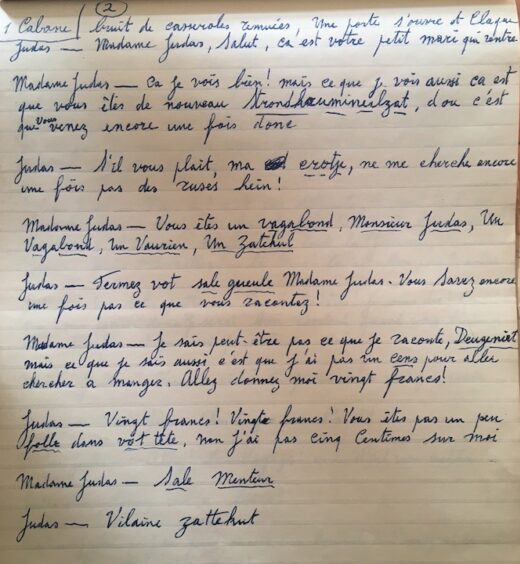 (2)
1 Cabane / bruit de casseroles remuées, Une porte s'ouvre et Claque
Judas — Madame Judas, Salut, ca est votre petit mari qui rentre
Madame Judas — Ca je vois bien! mais ce que je vois aussi ca est
que vous êtes de nouveau, d'ou c'est
que vous venez encore une fois donc
Judas — S'il vous plait, ma crotje, ne me cherche encore
une fois pas des ruses hein!
Madame Judas — Vous êtes un vagabond, Monsieur Judas, Un
Vagabond, Un Vaurien, Un Zatehul
Judas — Fermez vot sale gueule Madame Judas. Vous savez encore
une fois pas ce que vous racontez!
Madame Judas — Je sais peut-être pas ce que je raconte, Deugeniet
mais ce que je sais aussi c'est que j'ai pas un cens pour aller
chercher à manger. Allez donnez moi vingt francs!
Judas — Vingt francs! Vingt francs! Vous êtes pas un peu
folle dans vot tête, non j'ai pas cinq centimes sur moi
Madame Judas — Sale Menteur
Judas — Vilaine zattekut